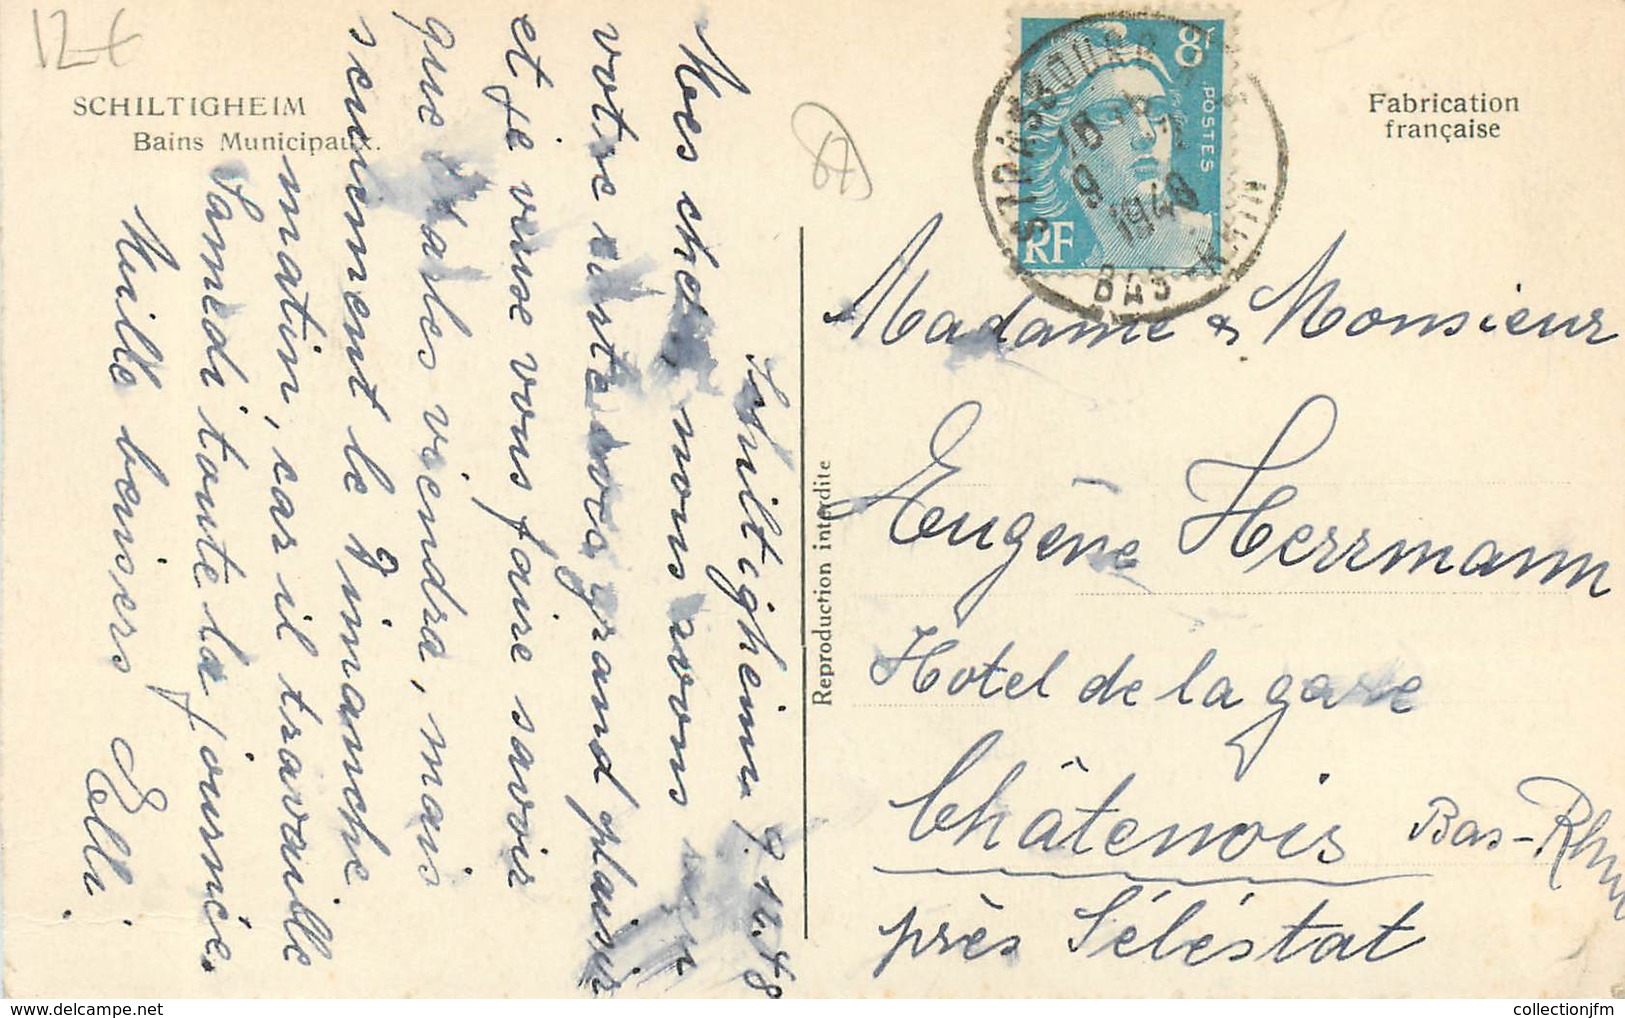 12€
SCHILTIGHEIM
Bains Municipaux.
Fabrication
française
Reproduction interdite
8F
POSTES
RF
STRASBOURG
18
9
1948
BAS-RHIN
67
Schiltigheim, 9.12.48
Mes chers, nous avons
votre carte avec grand plaisir
et je veux vous faire savoir
que Charles viendra, mais
seulement le Dimanche
matin, car il travaille
Samedi toute la journée.
Mille baisers Elli.
Madame & Monsieur
Eugène Herrmann
Hotel de la gare
Châtenois Bas-Rhin
près Séléstat
collectionjfm